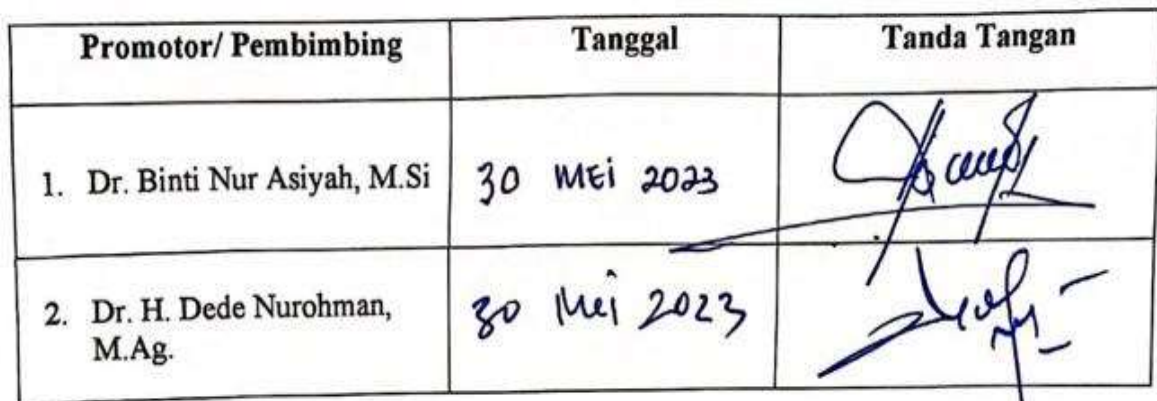 Promotor/ Pembimbing Tanggal Tanda Tangan
1. Dr. Binti Nur Asiyah, M.Si 30 MEi 2023
2. Dr. H. Dede Nurohman, 30 Mei 2023
M.Ag.